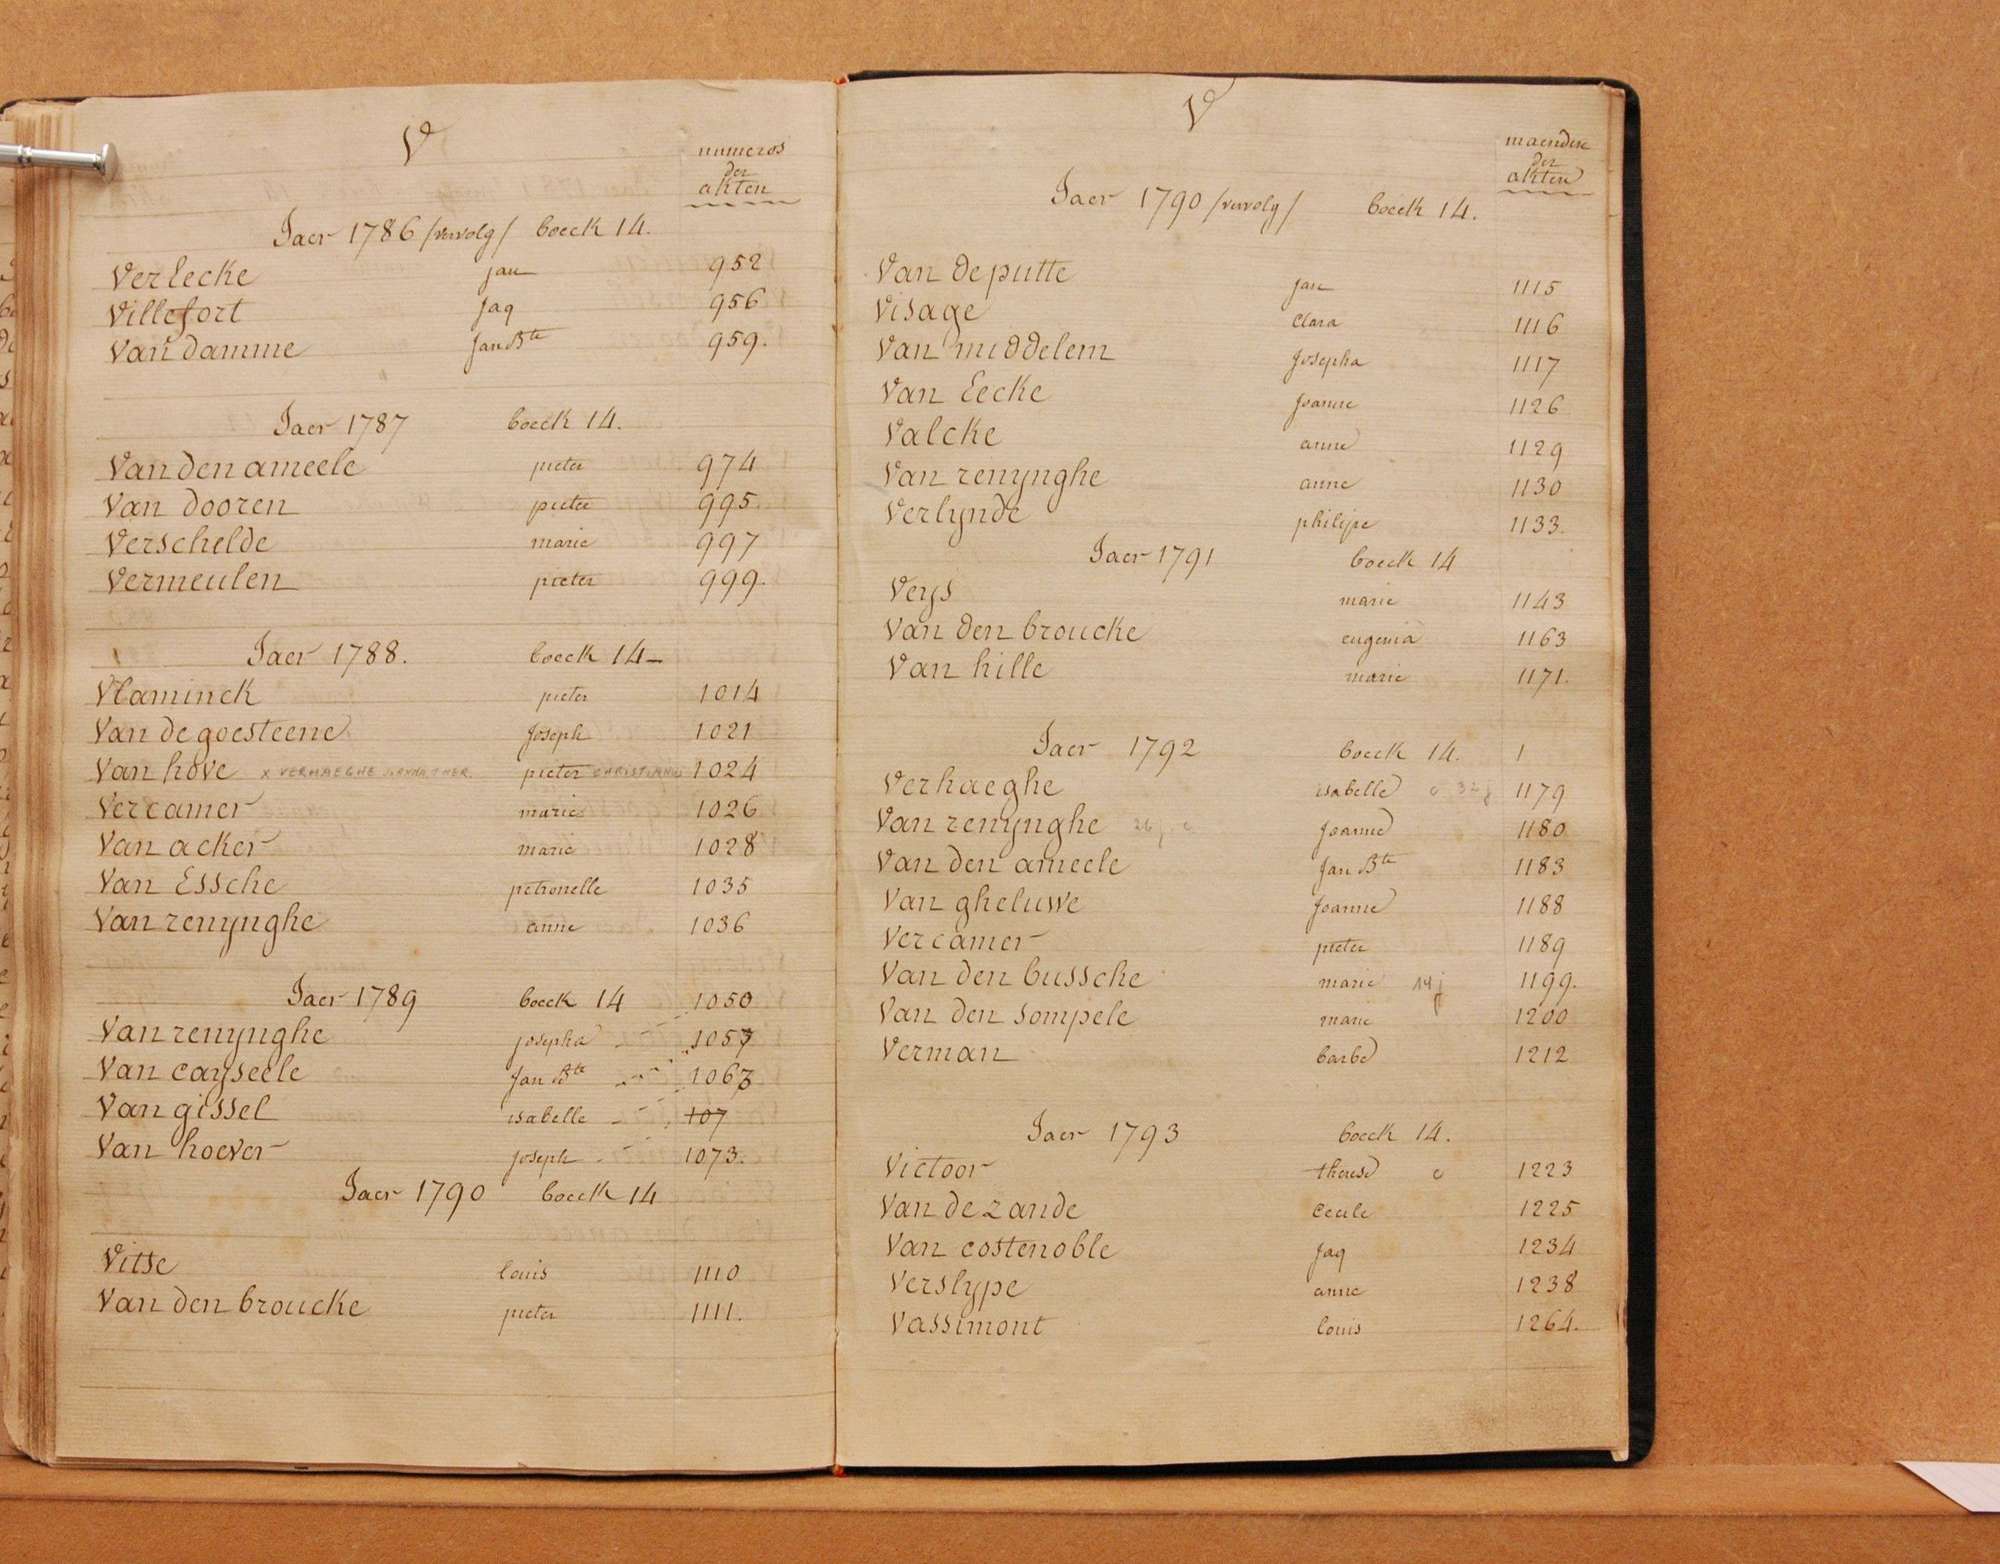 V
numeros
der
akten
Jaer 1786 /vervolg/ boeck 14.
Verleeke jan 952
Villefort jaq 956
Van damme jan Bte 959.
Jaer 1787 boeck 14.
Van den ameele pieter 974
Van dooren pieter 995
Verschelde marie 997
Vermeulen pieter 999.
Jaer 1788. boeck 14–
Vlaminck pieter 1014
Van de goesteene joseph 1021
Van hove x VERHAEGHE pieter CHRISTIANUS 1024
Vercamer marie 1026
Van acker marie 1028
Van Essche petronelle 1035
Van renynghe anne 1036
Jaer 1789 boeck 14 1050
Van renynghe josepha 1057
Van cayseele jan Bte 1063
Van gissel isabelle 107
Van hoever joseph 1073.
Jaer 1790 boeck 14
Vitse louis 1110
Van den broucke pieter 1111.
V
maendere
der
akten
Jaer 1790 /vervolg/ boeck 14.
Van de putte jan 1115
Visage clara 1116
Van middelem josepha 1117
Van Eecke joanne 1126
Valcke anne 1129
Van renynghe anne 1130
Verlynde philipe 1133.
Jaer 1791 boeck 14
Veys marie 1143
Van den broucke eugenia 1163
Van hille marie 1171.
Jaer 1792 boeck 14. 1
Verhaeghe isabelle c 32j 1179
Van renynghe 26j c joanne 1180
Van den ameele jan Bte 1183
Van gheluwe joanne 1188
Vercamer pieter 1189
Van den bussche marie 14j 1199.
Van den sompele marie 1200
Verman barbe 1212
Jaer 1793 boeck 14.
Victoor therese c 1223
Van de zande cecile 1225
Van costenoble jaq 1234
Verslype anne 1238
Vassimont louis 1264.